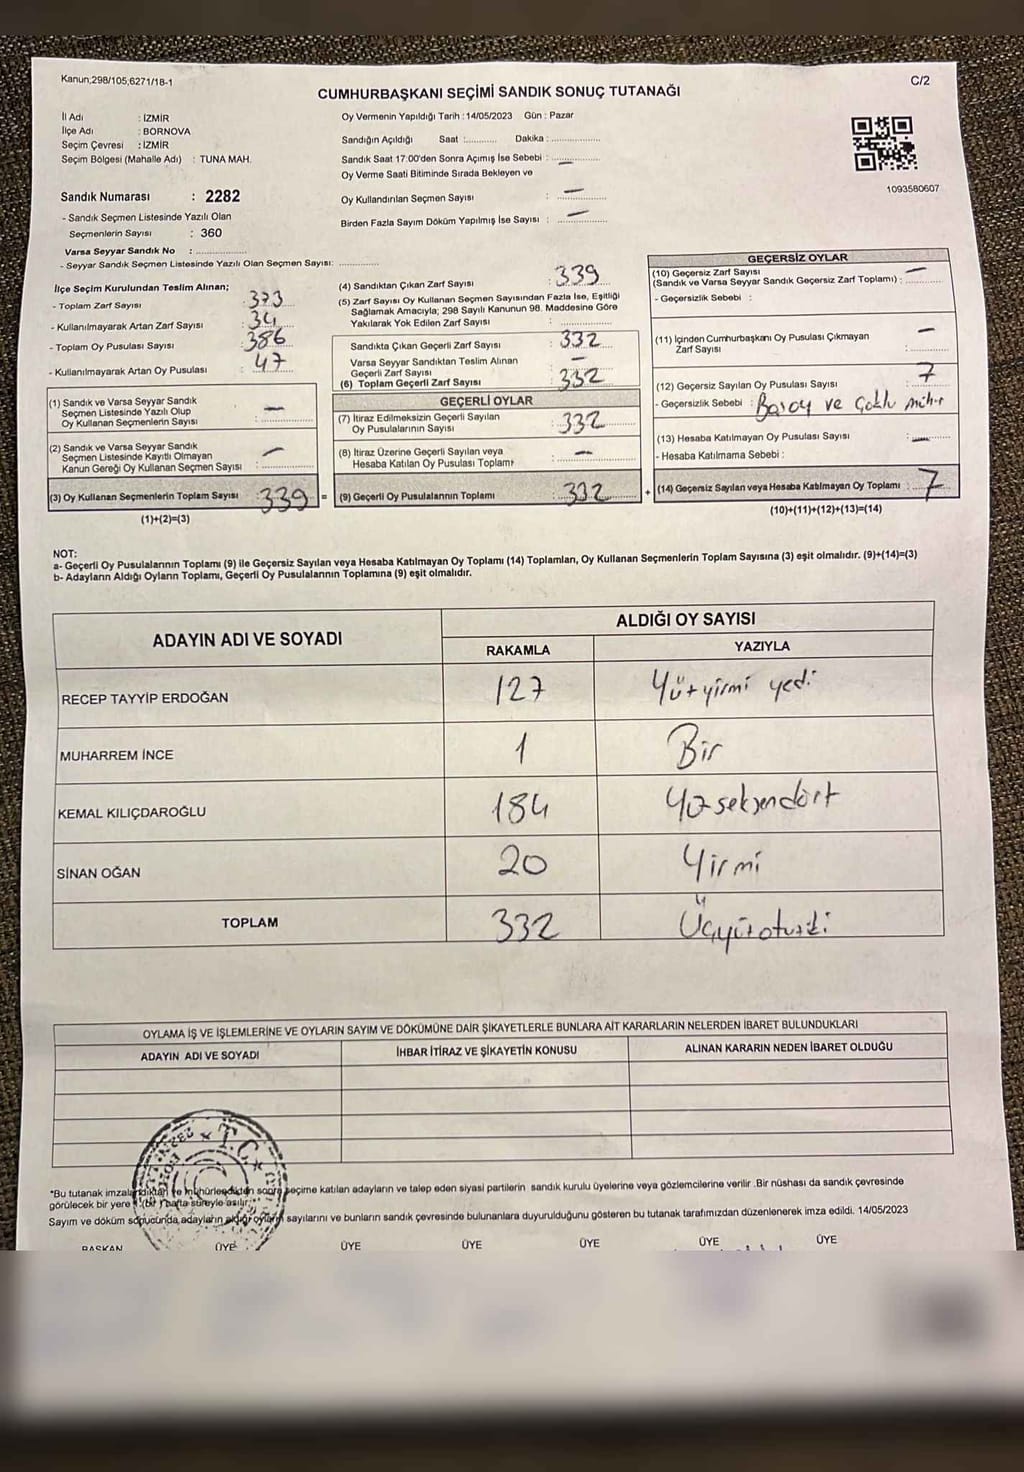 Kanun,298/105,6271/18-1
C/2
CUMHURBAŞKANI SEÇİMİ SANDIK SONUÇ TUTANAĞI
İl Adı : İZMİR
İlçe Adı : BORNOVA
Seçim Çevresi : İZMİR
Seçim Bölgesi (Mahalle Adı) : TUNA MAH.
Sandık Numarası : 2282
- Sandık Seçmen Listesinde Yazılı Olan
Seçmenlerin Sayısı : 360
Varsa Seyyar Sandık No :
- Seyyar Sandık Seçmen Listesinde Yazılı Olan Seçmen Sayısı:
Oy Vermenin Yapıldığı Tarih : 14/05/2023 Gün : Pazar
Sandığın Açıldığı Saat : Dakika :
Sandık Saat 17:00'den Sonra Açımış İse Sebebi : —
Oy Verme Saati Bitiminde Sırada Bekleyen ve
Oy Kullandırılan Seçmen Sayısı : —
Birden Fazla Sayım Döküm Yapılmış İse Sayısı : —
1093580607
İlçe Seçim Kurulundan Teslim Alınan;
- Toplam Zarf Sayısı : 373
- Kullanılmayarak Artan Zarf Sayısı : 34
- Toplam Oy Pusulası Sayısı : 386
- Kullanılmayarak Artan Oy Pusulası : 47
(1) Sandık ve Varsa Seyyar Sandık
Seçmen Listesinde Yazılı Olup
Oy Kullanan Seçmenlerin Sayısı : —
(2) Sandık ve Varsa Seyyar Sandık
Seçmen Listesinde Kayıtlı Olmayan
Kanun Gereği Oy Kullanan Seçmen Sayısı : —
(3) Oy Kullanan Seçmenlerin Toplam Sayısı : 339 =
(1)+(2)=(3)
(4) Sandıktan Çıkan Zarf Sayısı : 339
(5) Zarf Sayısı Oy Kullanan Seçmen Sayısından Fazla İse, Eşitliği
Sağlamak Amacıyla; 298 Sayılı Kanunun 98. Maddesine Göre
Yakılarak Yok Edilen Zarf Sayısı :
Sandıkta Çıkan Geçerli Zarf Sayısı : 332
Varsa Seyyar Sandıktan Teslim Alınan
Geçerli Zarf Sayısı : —
(6) Toplam Geçerli Zarf Sayısı : 332
GEÇERLİ OYLAR
(7) İtiraz Edilmeksizin Geçerli Sayılan
Oy Pusulalarının Sayısı : 332
(8) İtiraz Üzerine Geçerli Sayılan veya
Hesaba Katılan Oy Pusulası Toplamı : —
(9) Geçerli Oy Pusulalarının Toplamı : 332 +
GEÇERSİZ OYLAR
(10) Geçersiz Zarf Sayısı
(Sandık ve Varsa Seyyar Sandık Geçersiz Zarf Toplamı) : —
- Geçersizlik Sebebi :
(11) İçinden Cumhurbaşkanı Oy Pusulası Çıkmayan
Zarf Sayısı : —
(12) Geçersiz Sayılan Oy Pusulası Sayısı : 7
- Geçersizlik Sebebi : Boş oy ve Çoklu mühür
(13) Hesaba Katılmayan Oy Pusulası Sayısı : —
- Hesaba Katılmama Sebebi :
(14) Geçersiz Sayılan veya Hesaba Katılmayan Oy Toplamı : 7
(10)+(11)+(12)+(13)=(14)
NOT:
a- Geçerli Oy Pusulalarının Toplamı (9) ile Geçersiz Sayılan veya Hesaba Katılmayan Oy Toplamı (14) Toplamları, Oy Kullanan Seçmenlerin Toplam Sayısına (3) eşit olmalıdır. (9)+(14)=(3)
b- Adayların Aldığı Oyların Toplamı, Geçerli Oy Pusulalarının Toplamına (9) eşit olmalıdır.
ADAYIN ADI VE SOYADI
ALDIĞI OY SAYISI
RAKAMLA YAZIYLA
RECEP TAYYİP ERDOĞAN 127 Yüzyirmi yedi
MUHARREM İNCE 1 Bir
KEMAL KILIÇDAROĞLU 184 Yüzseksendört
SİNAN OĞAN 20 Yirmi
TOPLAM 332 Üçyüzotuziki
OYLAMA İŞ VE İŞLEMLERİNE VE OYLARIN SAYIM VE DÖKÜMÜNE DAİR ŞİKAYETLERLE BUNLARA AİT KARARLARIN NELERDEN İBARET BULUNDUKLARI
ADAYIN ADI VE SOYADI İHBAR İTİRAZ VE ŞİKAYETİN KONUSU ALINAN KARARIN NEDEN İBARET OLDUĞU
T.C.
*Bu tutanak imzalandıktan ve mühürlendikten sonra seçime katılan adayların ve talep eden siyasi partilerin sandık kurulu üyelerine veya gözlemcilerine verilir .Bir nüshası da sandık çevresinde
görülecek bir yere 1 (bir ) hafta süreyle asılır.
Sayım ve döküm sonucunda,adayların aldığı oyların sayılarını ve bunların sandık çevresinde bulunanlara duyurulduğunu gösteren bu tutanak tarafımızdan düzenlenerek imza edildi. 14/05/2023
BAŞKAN ÜYE ÜYE ÜYE ÜYE ÜYE ÜYE